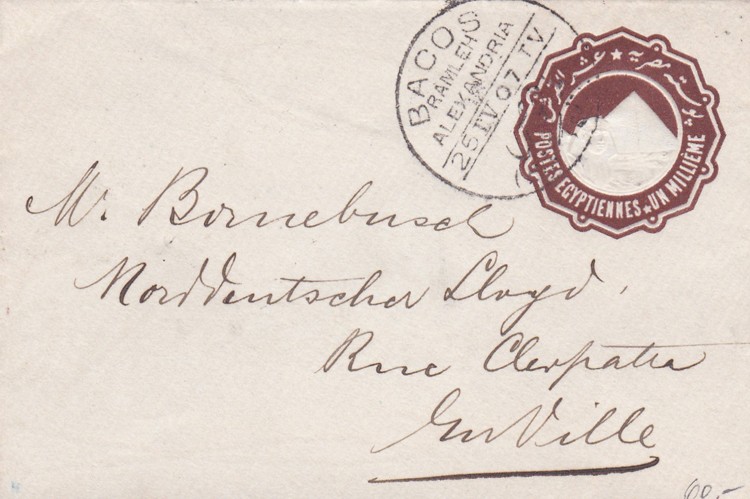 BACOS
RAMLEH
ALEXANDRIA
25 IV 07 IV
POSTES EGYPTIENNES ★ UN MILLIÈME
Mr. Bornebusch
Norddeutscher Lloyd.
Rue Cleopatra
En Ville
60.-